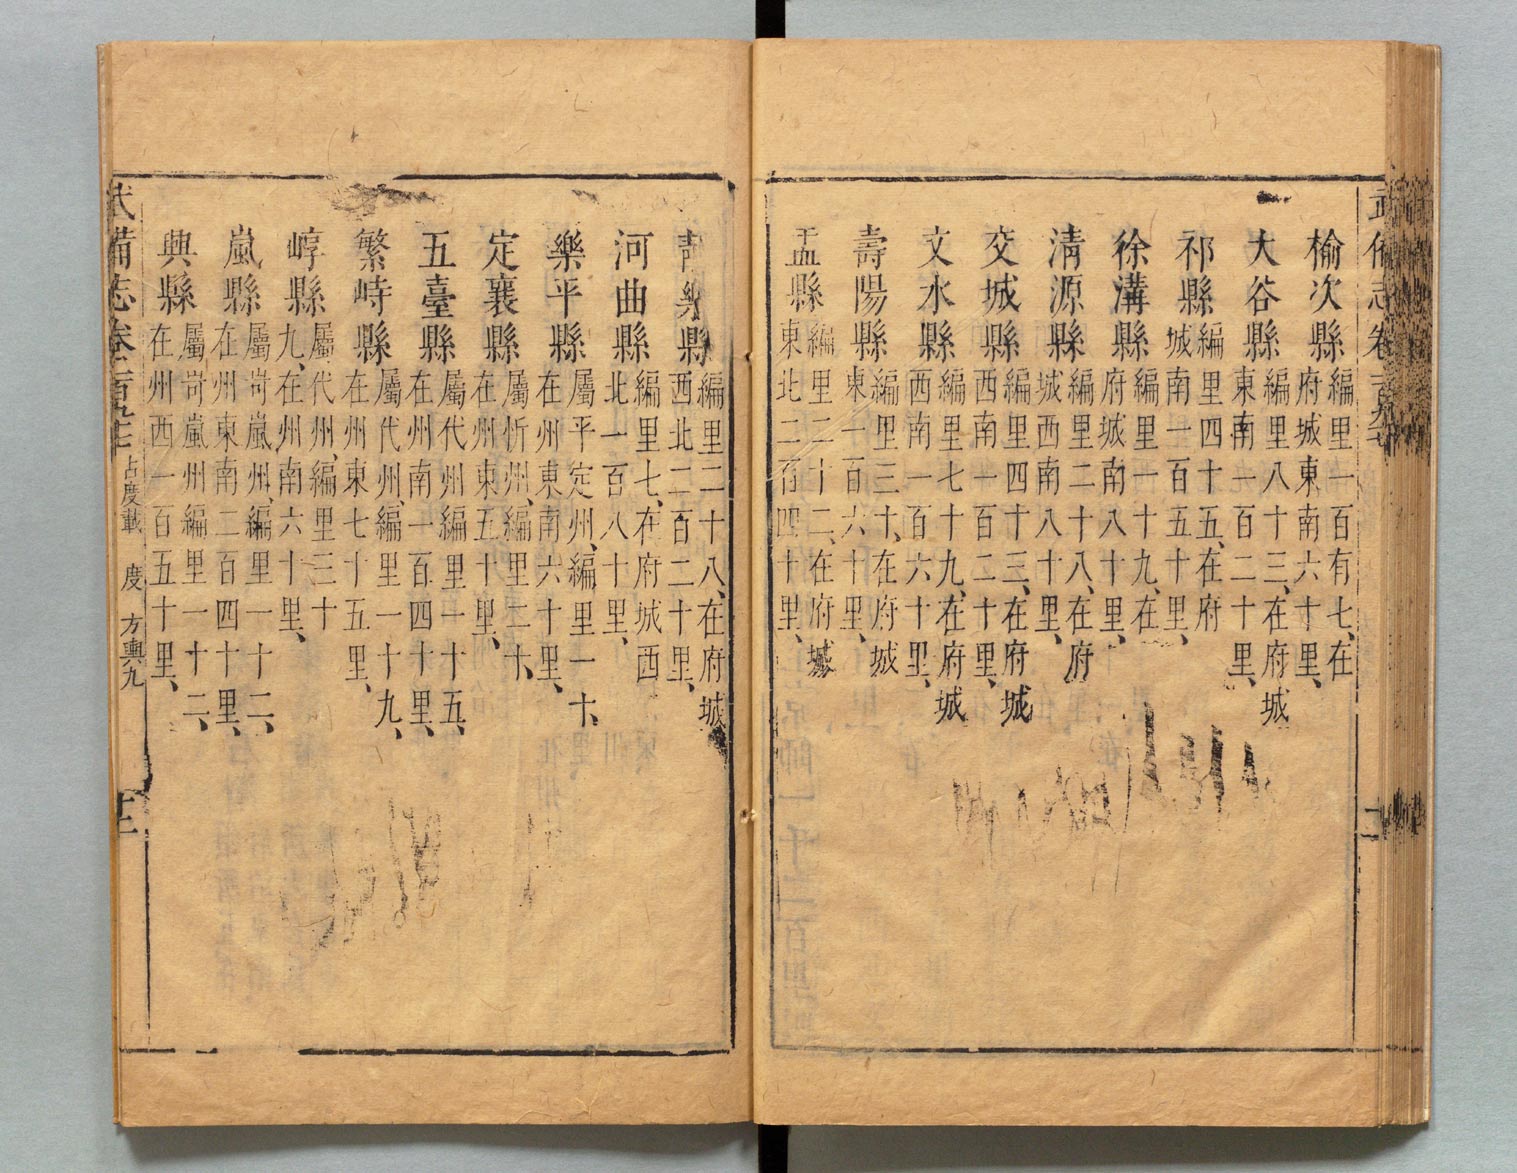 榆次縣編里一百有七、在府城東南六十里、
大谷縣編里八十三、在府城東南一百二十里、
祁縣編里四十五、在府城南一百五十里、
徐溝縣編里一十九、在府城南八十里、
清源縣編里二十八、在府城西南八十里、
交城縣編里四十三、在府城西南一百二十里、
文水縣編里七十九、在府城西南一百六十里、
壽陽縣編里三十、在府城東一百六十里、
盂縣編里二十二、在府城東北二百四十里、
靜樂縣編里二十八、在府城西北二百二十里、
河曲縣編里七、在府城西北一百八十里、
樂平縣屬平定州、編里一十、在州東南六十里、
定襄縣屬忻州、編里二十、在州東五十里、
五臺縣屬代州編里一十五、在州南一百四十里、
繁峙縣屬代州、編里一十九、在州東七十五里、
崞縣屬代州、編里三十九、在州南六十里、
嵐縣屬岢嵐州、編里一十二、在州東南二百四十里、
興縣屬岢嵐州編里一十二、在州西一百五十里、
武備志卷一百九十 占度載 度 方輿九